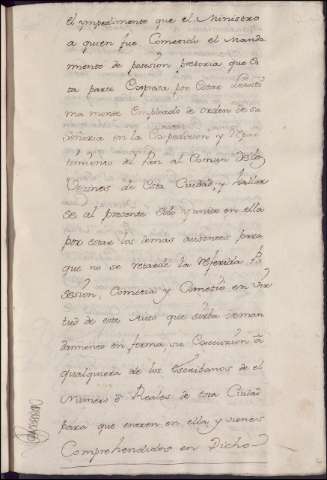 el ympedimento que el Ministro
a quien fue Cometido el Manda
miento de posesion pretoria que es
ta parte Expresa por estar lexiti
ma mente Empleado de orden de su
señoria en la Expedicion y Repar
timiento de Pan al Comun de los
Vezinos de esta Ciudad, y hallar
se al presente solo y unico en ella
por estar los demas ausentes para
que no se retarde la referida Po
sesion, Cometia y Cometio en vir
tud de este Auto que sirba de man
damiento en forma su Execucion a
qualquiera de los Escribanos de el
Numero o Reales de esta Ciudad
para que entren en ella y vienes
Comprehendidos en Dicho